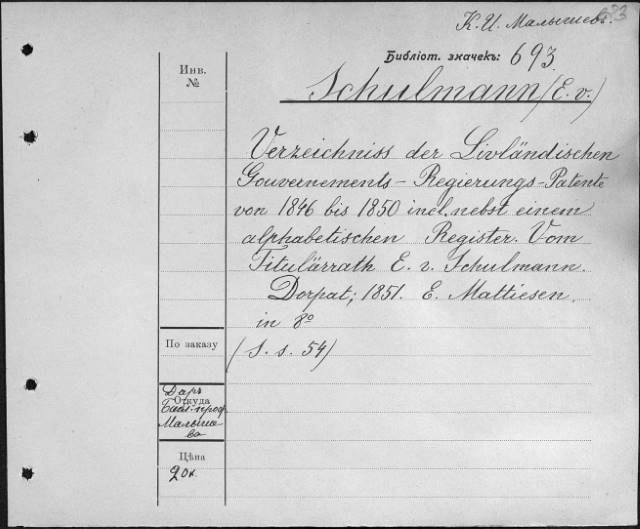 К. И. Малышев. 693
Библіот. значекъ: 693.
Инв.
№
Schulmann (E. v.)
Verzeichniss der Livländischen
Gouvernements-Regierungs-Patente
von 1846 bis 1850 incl. nebst einem
alphabetischen Register. Vom
Titulärrath E. v. Schulmann.
Dorpat; 1851. E. Mattiesen.
in 8º
По заказу
(S. s. 54)
Даръ
Откуда
проф.
Малыше
ва
Цѣна
20к.